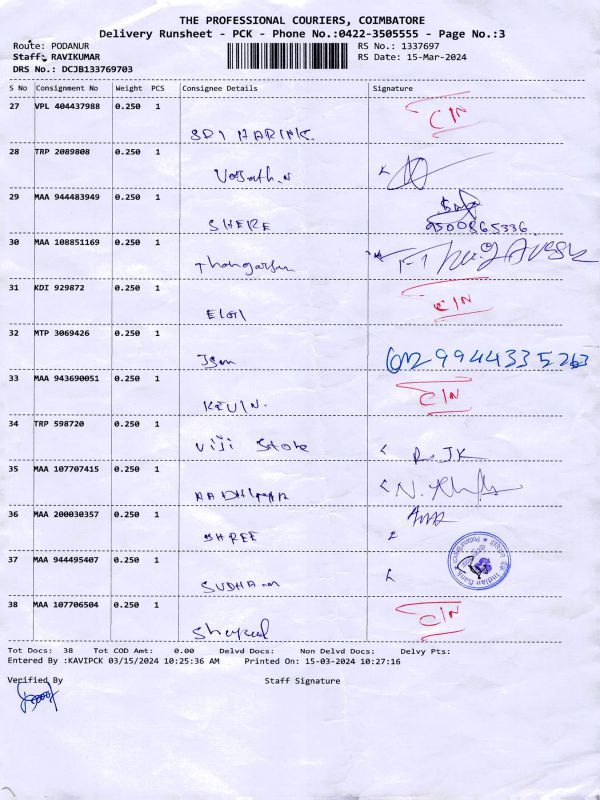 THE PROFESSIONAL COURIERS, COIMBATORE
Delivery Runsheet - PCK - Phone No.:0422-3505555 - Page No.:3
Route: PODANUR RS No.: 1337697
Staff: RAVIKUMAR RS Date: 15-Mar-2024
DRS No.: DCJB133769703
S No Consignment No Weight PCS Consignee Details Signature
27 VPL 404437988 0.250 1
CIN
SRI HARI
28 TRP 2089808 0.250 1
29 MAA 944483949 0.250 1
SHERE 9500865336
30 MAA 108851169 0.250 1
31 KDI 929872 0.250 1
CIN
ELGI
32 MTP 3069426 0.250 1
9944335263
33 MAA 943690051 0.250 1
CIN
KEVIN
34 TRP 598720 0.250 1
Viji Store R. JK
35 MAA 107707415 0.250 1
36 MAA 200030357 0.250 1
SHREE
37 MAA 944495407 0.250 1
Indian Bank
SUDHA
38 MAA 107706504 0.250 1
CIN
Tot Docs: 38 Tot COD Amt: 0.00 Delvd Docs: Non Delvd Docs: Delvy Pts:
Entered By :KAVIPCK 03/15/2024 10:25:36 AM Printed On: 15-03-2024 10:27:16
Verified By Staff Signature